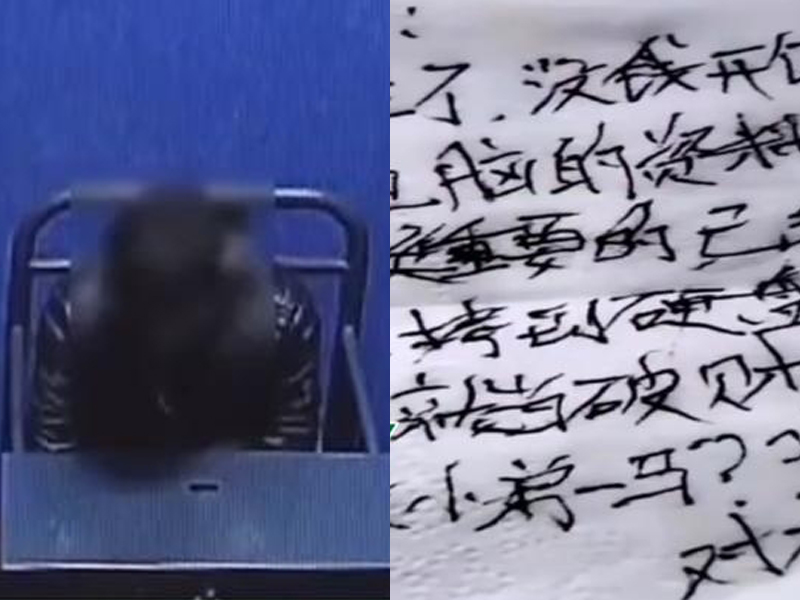 了.没钱开
脑的资料
重要的已
拷到硬盘
就当破财
小弟一马?
对不